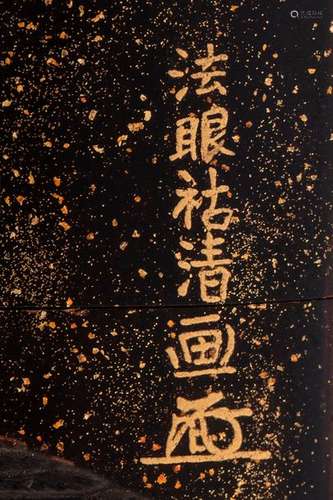 法眼祐清画